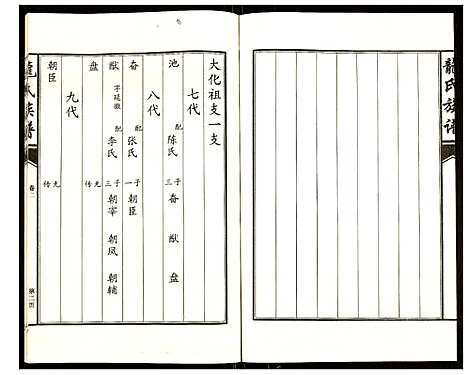 龍氏族譜
大化祖支一支
七代
池 配陳氏 子三 畚 猷 盘
八代
畚 配張氏 子一 朝臣
猷 字廷徽 配李氏 子三 朝宰 朝凤 朝輔
盘 无传
九代
朝臣 无传
龍氏族譜 卷二 第二页